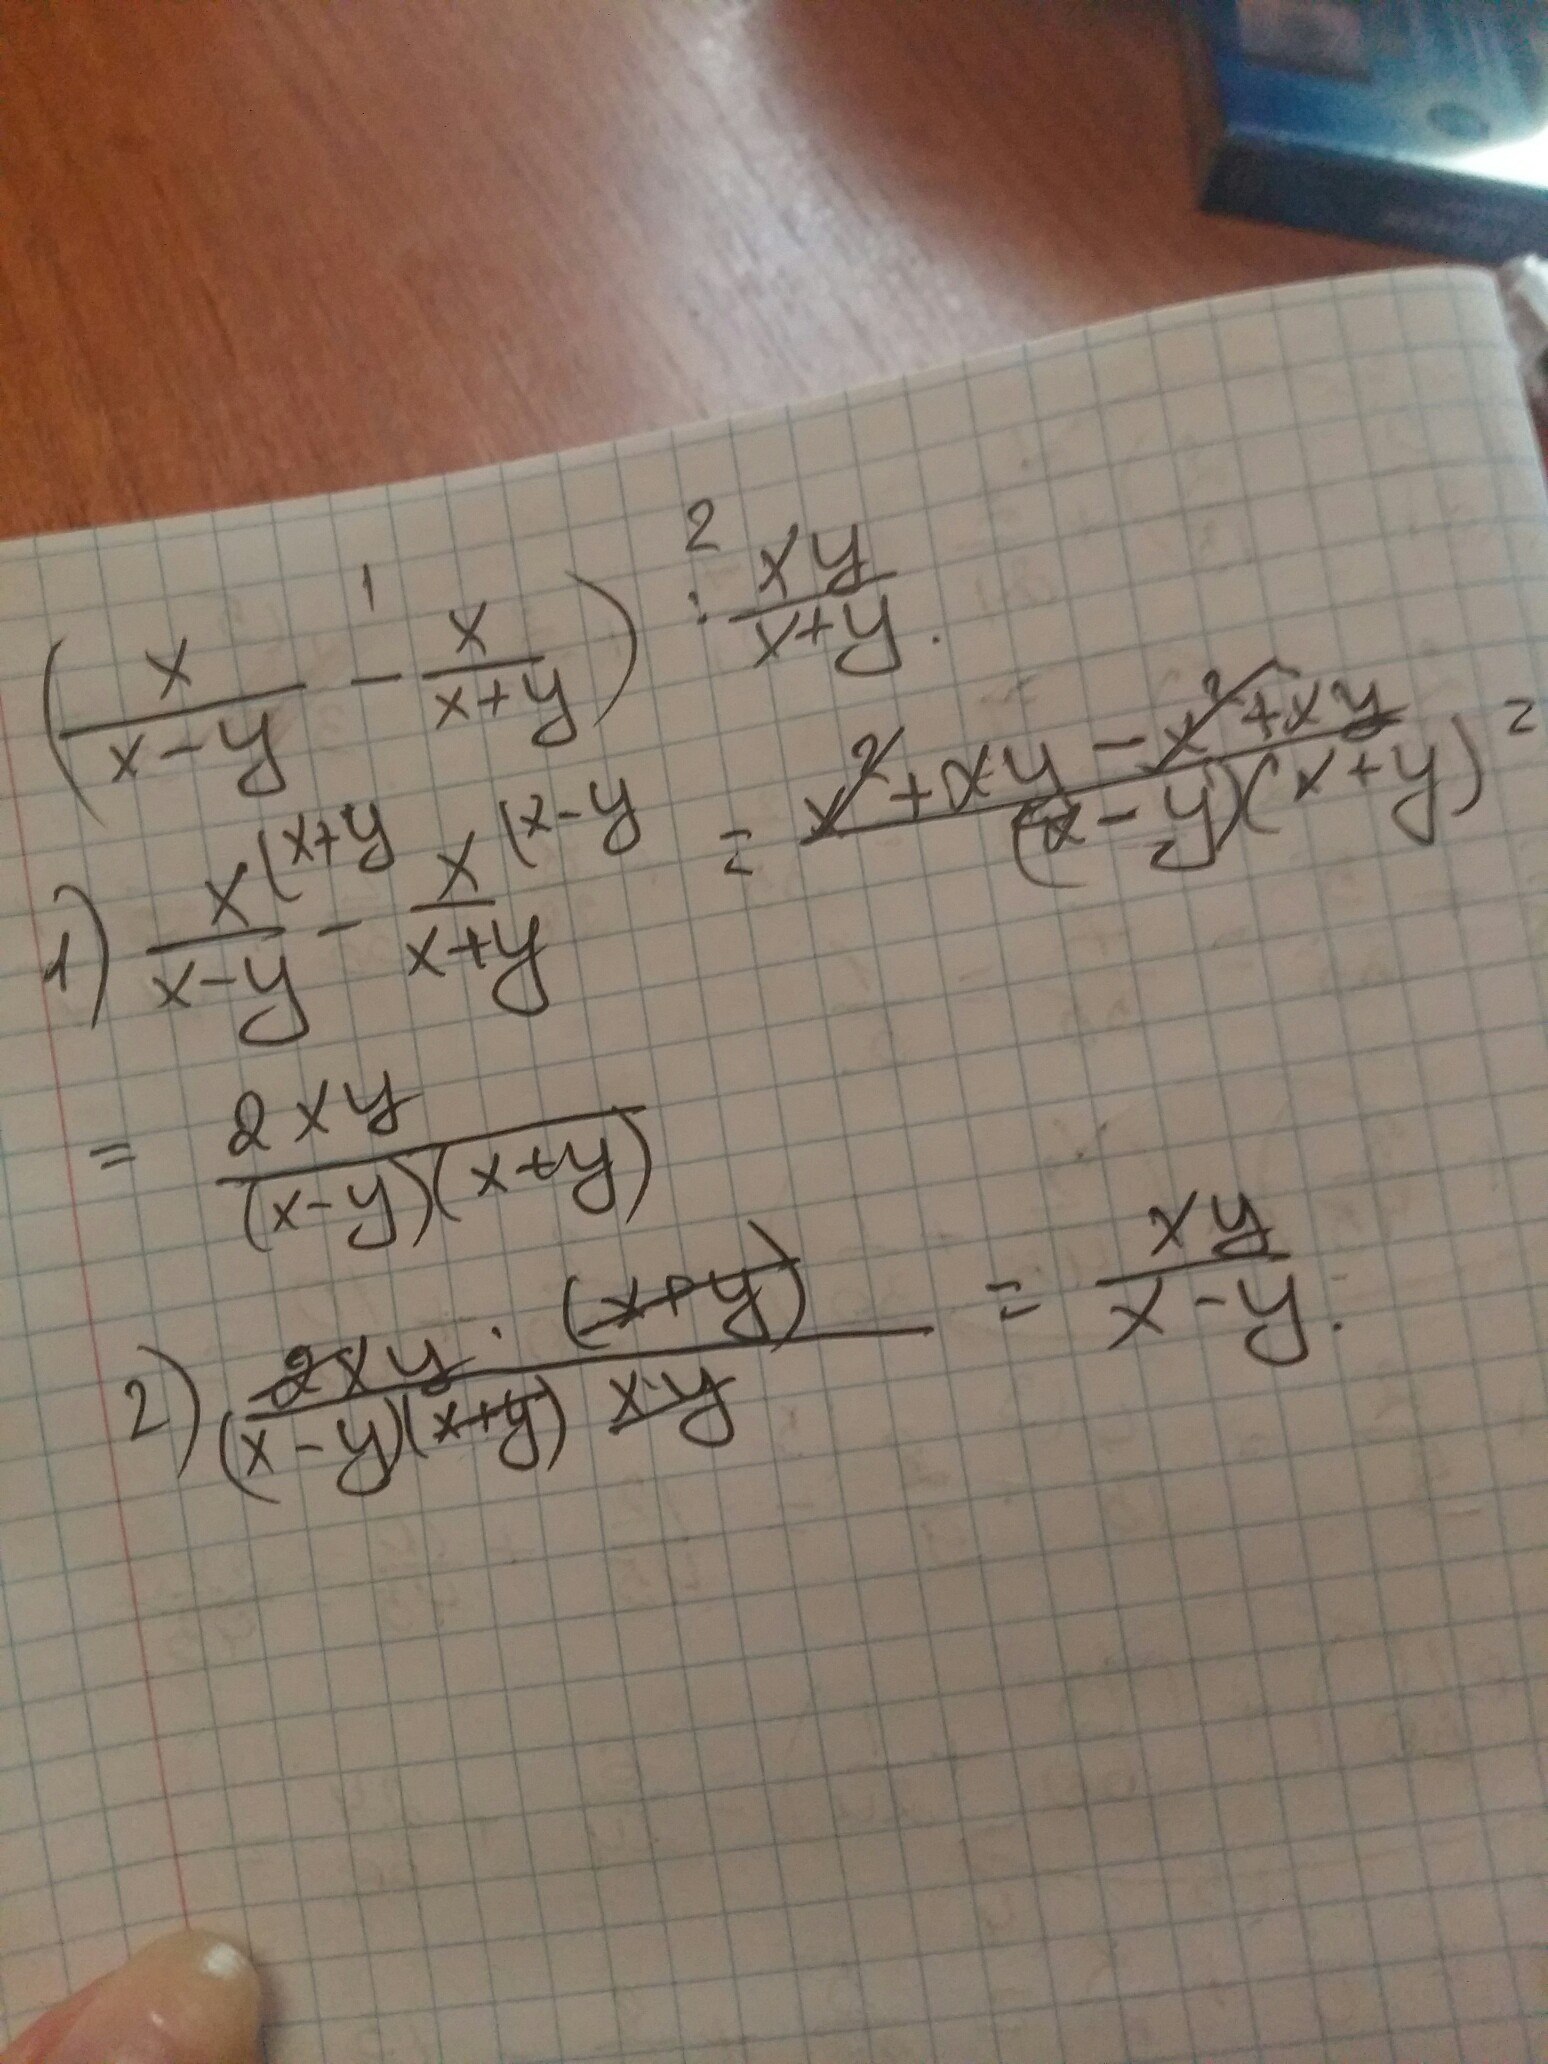 (x/(x-y) - ¹ x/(x+y)) :² xy/(x+y).
1) x(x+y/(x-y) - x(x-y/(x+y) = (x²+xy-x²+xy)/((x-y)(x+y)) =
= 2xy/((x-y)(x+y))
2) 2xy·(x+y)/((x-y)(x+y) x·y) = xy/(x-y).